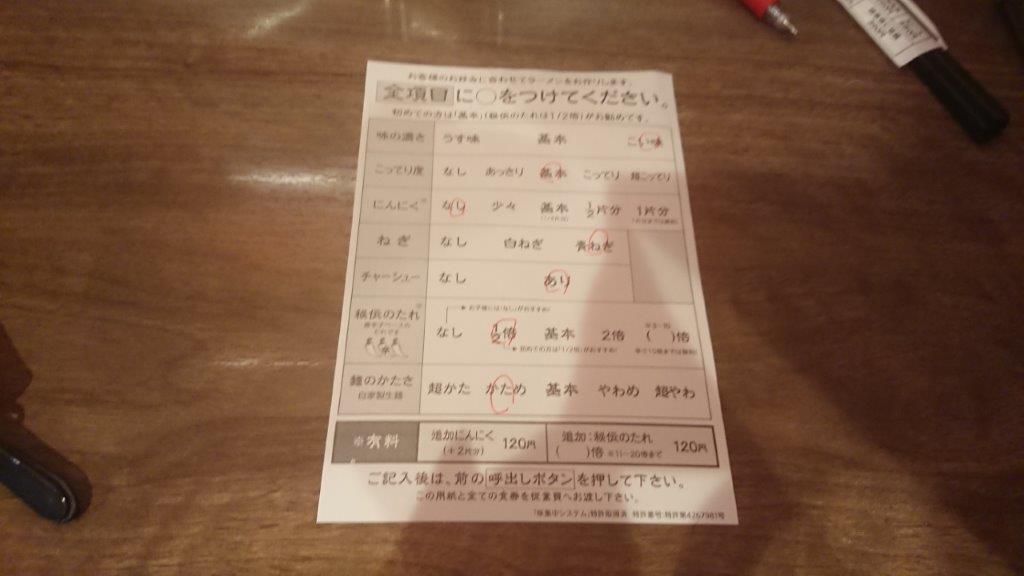 お客様のお好みに合わせてラーメンをお作りします。
全項目に○をつけてください。
初めての方は「基本」(秘伝のたれは1/2倍)がお勧めです。
味の濃さ うす味 基本 こい味
こってり度 なし あっさり 基本 こってり 超こってり
にんにく※ なし 少々 基本 1/2片分 1片分
ねぎ なし 白ねぎ 青ねぎ
チャーシュー なし あり
お子様には「なし」がおすすめ!
秘伝のたれ※ なし 1/2倍 基本 2倍 ( )倍
初めての方は「1/2倍」がおすすめ!
麺のかたさ 超かた かため 基本 やわめ 超やわ
自家製生麺
※有料 追加にんにく (+2片分) 120円 追加:秘伝のたれ ( )倍 ※11~20倍まで 120円
ご記入後は、前の呼出しボタンを押して下さい。
この用紙と全ての食券を従業員へお渡し下さい。
「味集中システム」特許取得済 特許番号:特許第4267981号